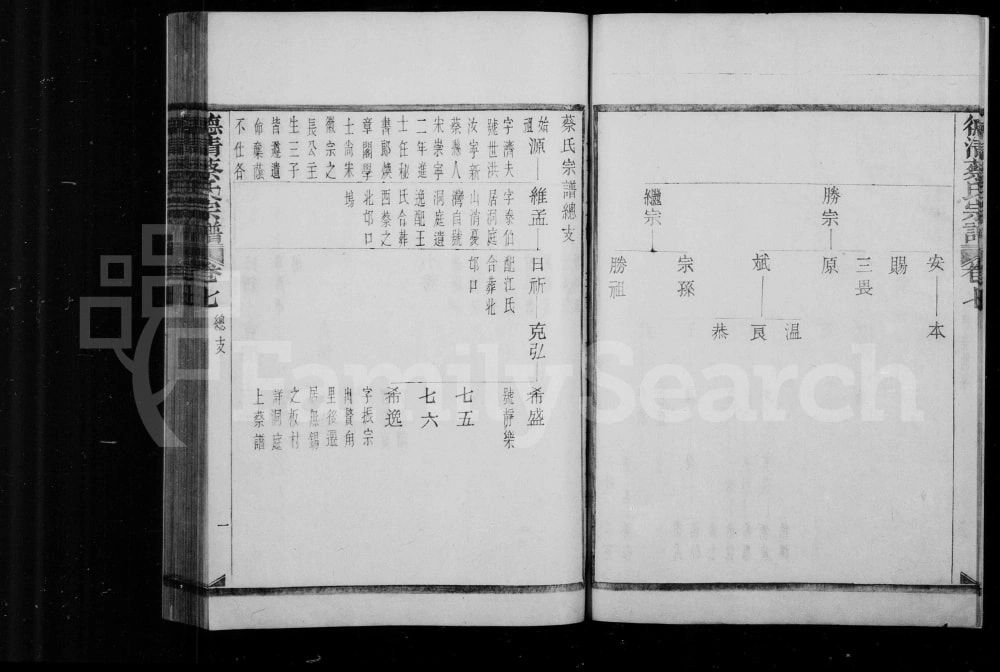 德清蔡氏宗譜 卷七
安 本
賜
三畏
勝宗 原
斌 溫
良
恭
繼宗 宗孫
勝祖
蔡氏宗譜總支
始祖 源 維孟 日新 克弘 希盛
字濟夫
號世洪
汝字新
蔡縣人
宋崇寧
二年進
士任秘
書郎煥
章閣學
士尚宋
徽宗之
長公主
生三子
皆遵遺
命棄蔭
不仕各
字泰伯
居洞庭
山消憂
灣自號
洞庭遺
逸配王
氏合葬
西蔡之
北邙口
塢
配江氏
合葬北
邙口
號靜樂
七五
七六
希逸
字振宗
里後遷
居無錫
之板村
詳洞庭
上蔡譜
德清蔡氏宗譜 卷七 總支 一
FamilySearch